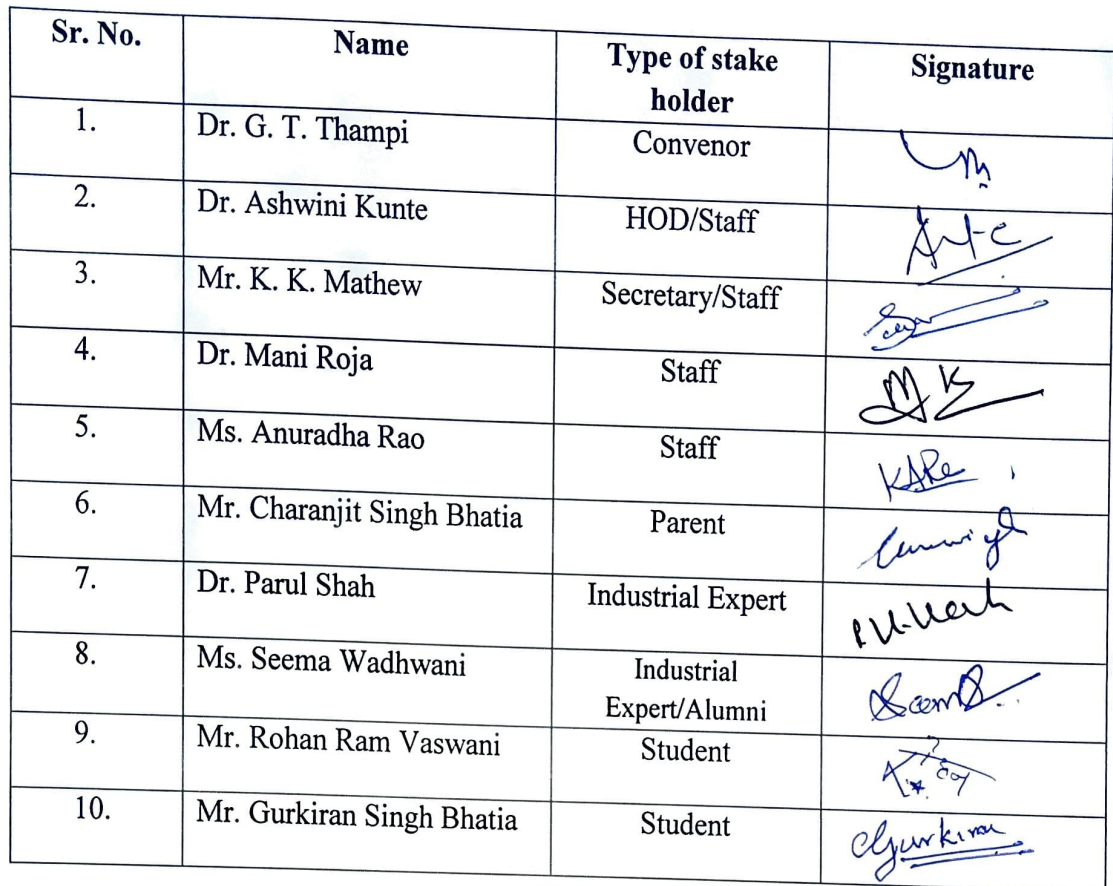 Sr. No. Name Type of stake holder Signature
1. Dr. G. T. Thampi Convenor
2. Dr. Ashwini Kunte HOD/Staff
3. Mr. K. K. Mathew Secretary/Staff
4. Dr. Mani Roja Staff
5. Ms. Anuradha Rao Staff
6. Mr. Charanjit Singh Bhatia Parent
7. Dr. Parul Shah Industrial Expert
8. Ms. Seema Wadhwani Industrial Expert/Alumni
9. Mr. Rohan Ram Vaswani Student
10. Mr. Gurkiran Singh Bhatia Student Gurkiran